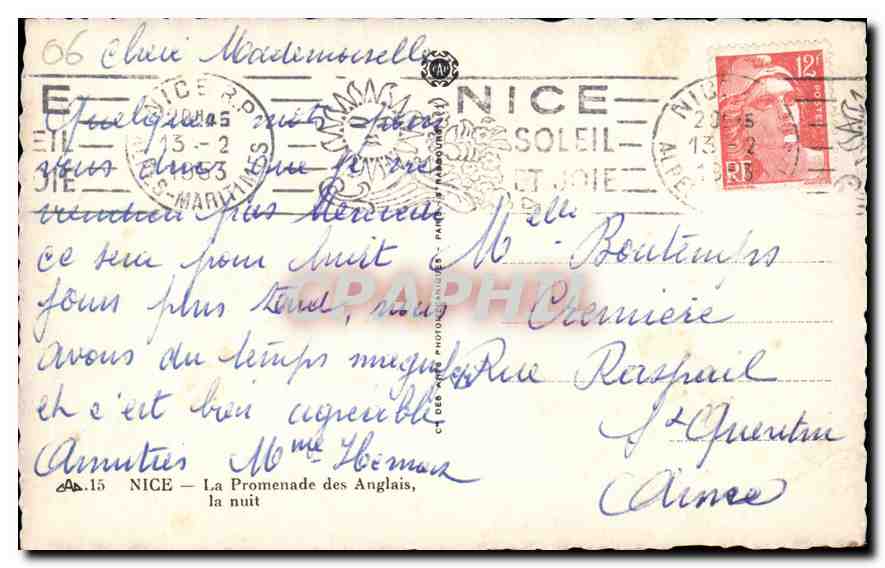 06 Chère Mademoiselle
Quelques mots pour
vous dire que je ne
viendrai pas Mercredi
ce sera pour huit
jours plus tard, nous
avons du temps magnifique
et c'est bien agréable
Amitiés Mme
AA.15 NICE — La Promenade des Anglais,
la nuit
CAP
CIE DES ARTS PHOTOMÉCANIQUES - PARIS - STRASBOURG
CPAPHD
NICE R.P.
13-2
1953
ALPES-MARITIMES
E
EIL
JOIE
NICE
SOLEIL
ET JOIE
NICE
20H45
13-2
1953
ALPES
12F
RF
GANDON
Melle Bontemps
Crémière
Rue Raspail
St Quentin
Aisne